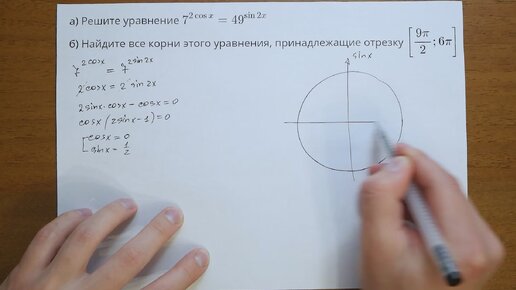 а) Решите уравнение 7^{2 cos x} = 49^{sin 2x}
б) Найдите все корни этого уравнения, принадлежащие отрезку [9π/2; 6π]
7^{2cosx} = 7^{2 sin 2x}
2cosx = 2 sin 2x
2sinx·cosx − cosx = 0
cosx (2sinx − 1) = 0
[cosx = 0
sinx = 1/2
sinx